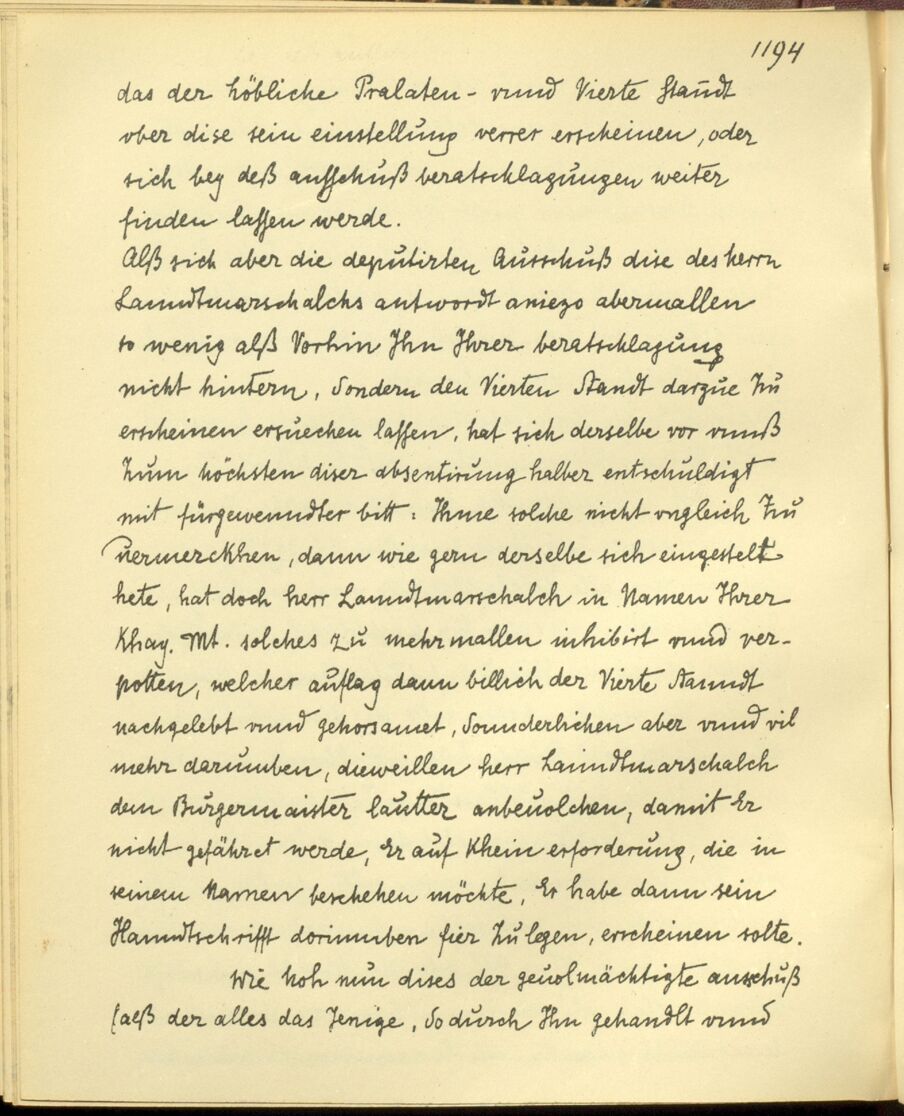 1194
das der höbliche Pralaten- vnnd Vierte Standt
vber dise sein einstellung verrer erscheinen, oder
sich bey deß aussschuß beratschlagungen weiter
finden lassen werde.
Alß sich aber die deputirten Ausschuß dise des herrn
Lanndtmarschalchs antwordt aniezo abermallen
so wenig alß Vorhin Ihn Ihrer beratschlagung
nicht hintern, Sondern den Vierten Standt darzue Zu
erscheinen ersuechen lassen, hat sich derselbe vor vnnß
Zum höchsten diser absentirung halber entschuldigt
mit fürgewenndter bitt: Ihme solche nicht vngleich Zu
uermerckhen, dann wie gern derselbe sich eingestelt
hete, hat doch herr Lanndtmarschalch in Namen Ihrer
Khay. Mt. solches zu mehrmallen inhibirt vnnd ver-
potten, welcher auflag dann billich der Vierte Stanndt
nachgelebt vnnd gehorsamet, Sonnderlichen aber vnnd vil
mehr darumben, dieweillen herr Lanndtmarschalch
dem Burgermaister lautter anbeuolchen, damit Er
nicht gefähret werde, Er auf Khein erforderung, die in
seinem Namen beschehen möchte, Er habe dann sein
Hanndtschrifft dorinnben fier Zu legen, erscheinen solte.
Wie hoh nun dises der geuolmächtigte ausschuß
(aeß der alles das Jenige, So durch Ihn gehandlt vnnd